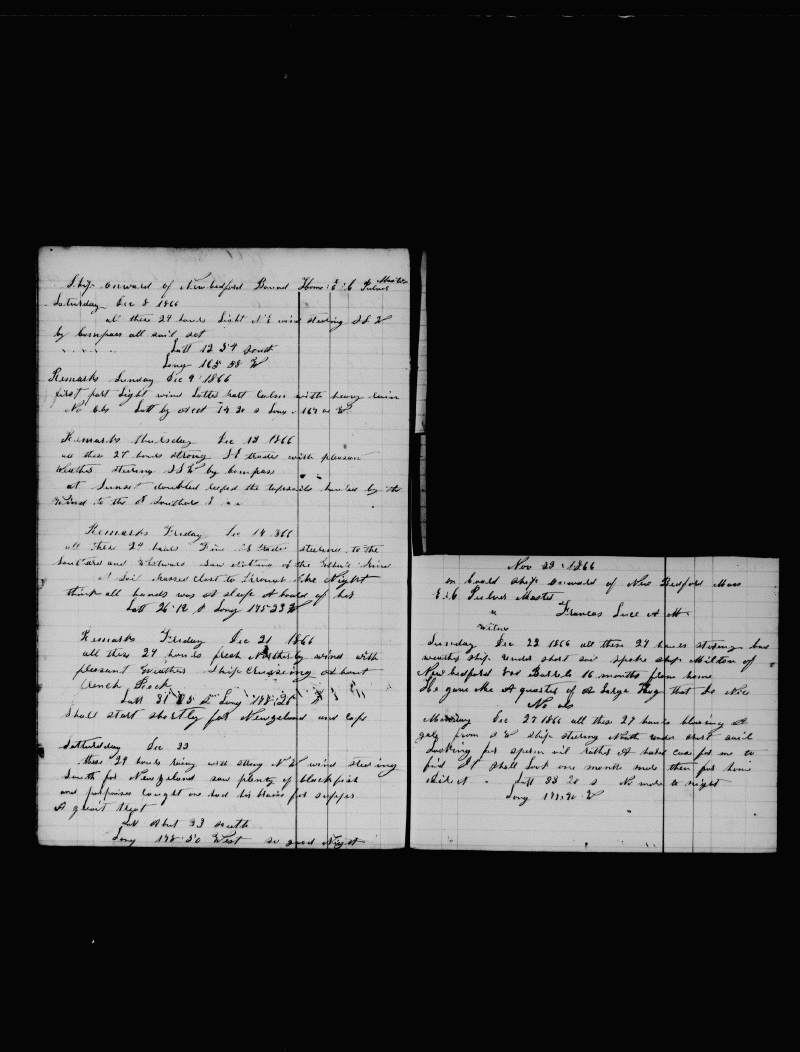 Ship Onward of New bedford Bound Home E: C Pulver Master
Saturday Dec 8 1866
all these 24 hours Light N E wind steering S S W
by Compass all sail set
Latt 12 54 South
Long 165 58 W
Remarks Sunday Dec 9 1866
first part Light wind Latter part Calm with heavy rain
No Obs Latt by acct 14 20 S Long 167 W
Remarks Thursday Dec 13 1866
all these 24 hours strong S E trades with pleasant
weather steering S S W by Compass
at Sunset doubled reefed the topsails hauled by the
wind to the Southard
Remarks Friday Dec 14 866
all these 24 hours Fine trades steering to the
Southard and Westward Saw
a Sail passed close to the Night
think all hands was a sleep A board of her
Latt 26 12 S Long 175 23 W
Remarks Friday Dec 21 1866
all these 24 hours fresh Northerly wind with
pleasant weather Ship Cruising about
French Rock
Latt 31 25 S Long 178 26
Shall start shortly for Newzeland and Cape
Satturday Dec 22
these 24 hours rainy with strong N W wind steering
South for Newzeland saw plenty of blackfish
and porpoises caught one had his brains for supper
A great treat
Latt About 33 South
Long 178 50 West so good Night
Nov 23 1866
on board Ship Onward of New Bedford Mass
E: C Pulver Master
Francas Luce
Sunday Dec 23 1866 all these 24 hours steering
weather Ship under short sail spoke Ship Milton of
New bedford Barrels 16 months from home
He gave Me A quarter of A Large Hog that is Nice
No
Dec 27 1866 all these 24 hours blowing A
gale from S W Ship steering North under short sail
Looking for sperm oil rather A hard case for me to
find It Shall Look one month more then for home
Latt 33 20 S No more to night
Long 171